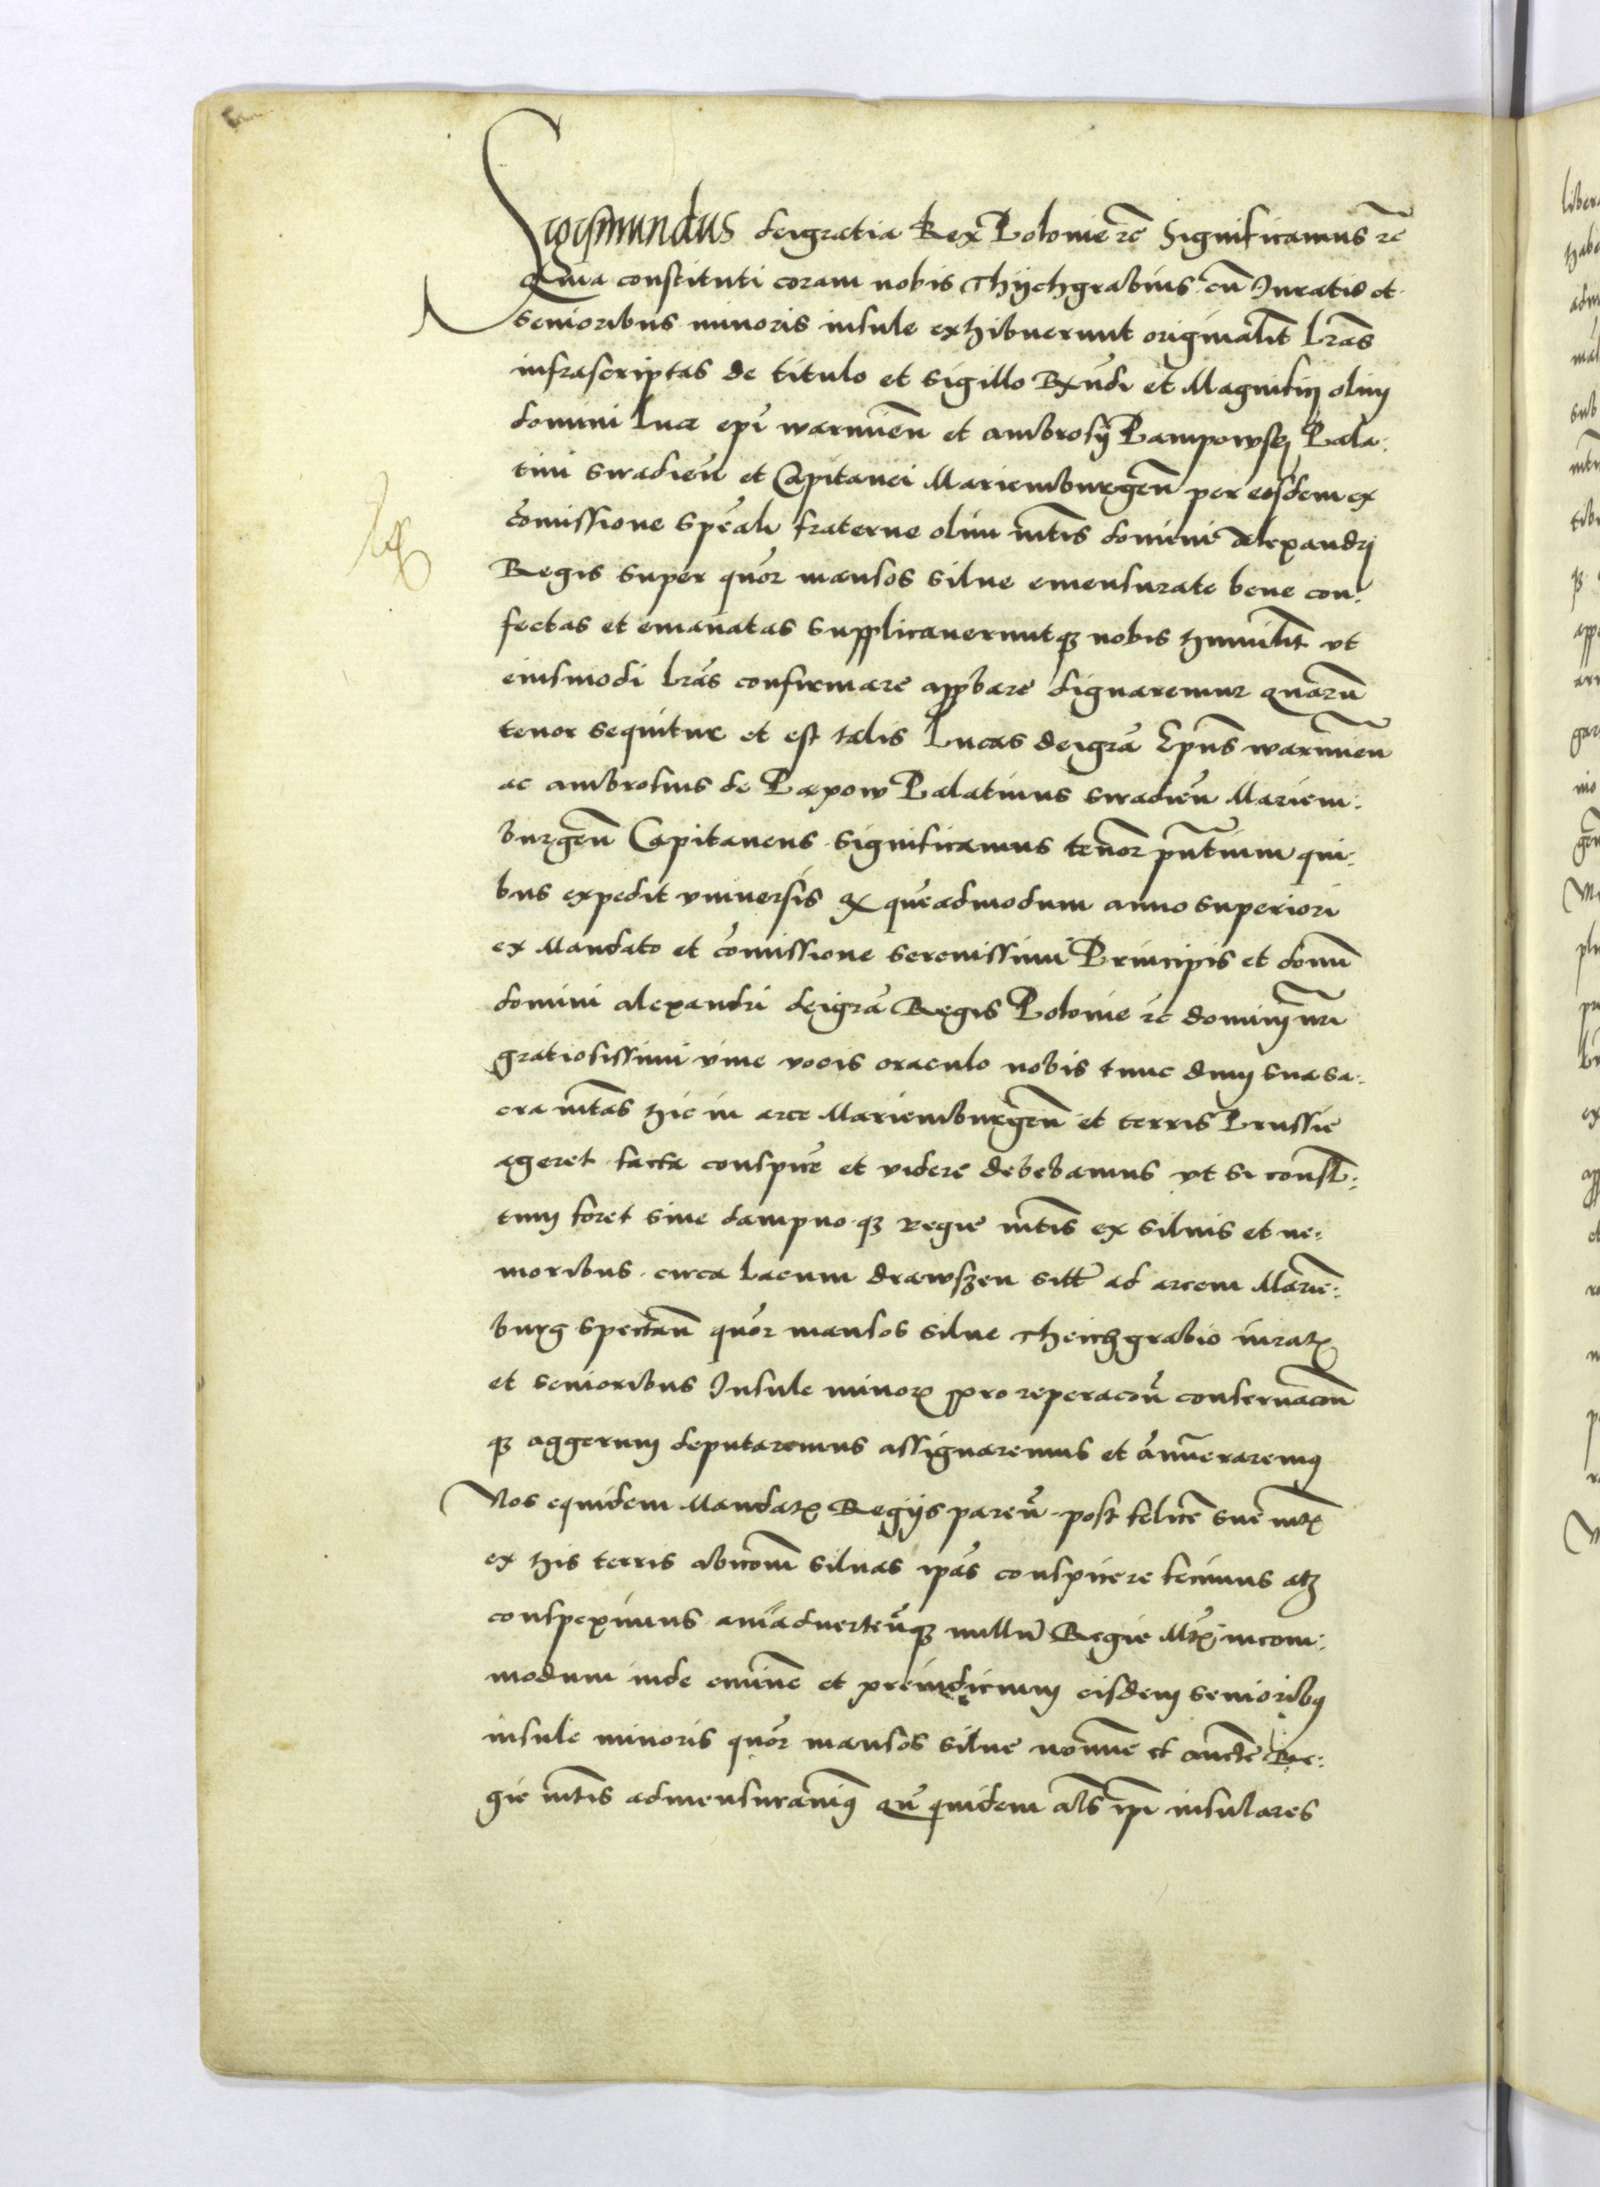 Sigismundus deigratia Rex Polonie etc̄ Significamus etc̄
Quia constituti coram nobis Thÿchgrabius cū Iuratis et
Senioribus minoris insule exhibuerunt originalit̄ lrās
infrascriptas de titulo et sigillo Rx̄ndi et Magnificj olim
domini luce epī warmien̄ et ambrosÿ Pampowskj Pala:
tini siradien̄ et Capitanei Mariemburgen̄ per eosdem ex
cōmissione spēali fraterne olim mtīs domini Alexandrj
Regis super quōr mansos silue emensurate bene con:
fectas et emanatas supplicaueruntqȝ nobis humilit̄ vt
eiusmodi lrās confirmare apꝓbare dignaremur quarū
tenor sequitur et est talis Lucas deigrā Epūs warmien̄
ac ambrosius de Papow Palatinus siradien̄ Mariem:
burgen̄ Capitaneus significamus tenōr pn̄tium qui:
bus expedit vniuersis Qꝫ quēadmodum anno superiori
ex Mandato et cōmissione serenissimi Principis et domī
domini alexandri deigrā Regis Polonie etc̄ dominj nr̄i
gratiosissimi viue vocis oraculo nobis tunc dum sua sa:
cra mtās hic in arce Mariemburgen̄ et terris Prussie
ageret facta conspicē et videre debebamus vt si consul:
tum foret sine dampno qȝ regie mtīs ex siluis et ne:
moribus circa lacum drawszen sitis ad arcem Marie:
burg spectan̄ quōr mansos silue Theichgrabio iuratꝫ
et senioribus Insule minorꝫ pro reperacōn̄ conseruacōn̄
qȝ aggerum deputaremus assignaremus et ānūeraremꝰ
Nos equidem Mandatꝫ Regÿs paren̄ post felicē sue mtꝫ
ex his terris abitiom̄ siluas ip̄as conspicere fecimus atqȝ
conspeximus aniāduerten̄qȝ nullū Regie Mtꝫ incom:
modum inde eminē et preiudicium eisdem senioribꝰ
insule minoris quōr mansos silue nomīe et auctē Re:
gie mtīs admensurauimꝰ qn̄ quidem als̄ ip̄i insulares